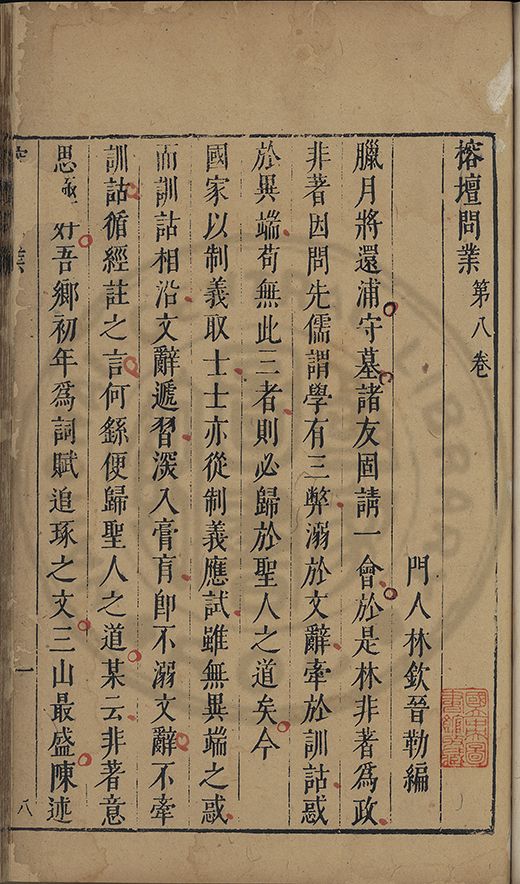 榕壇問業第八卷
門人林欽晉勒編
臘月將還浦守墓諸友固請一會於是林非著為政
非著因問先儒謂學有三弊溺於文辭牽於訓詁惑
於異端苟無此三者則必歸於聖人之道矣今
國家以制義取士士亦從制義應試雖無異端之惑
而訓詁相沿文辭遞習深入膏肓即不溺文辭不牽
訓詁循經註之言何繇便歸聖人之道某云非著意
思 好吾鄉初年為詞賦追琢之文三山最盛陳述
業
一
八